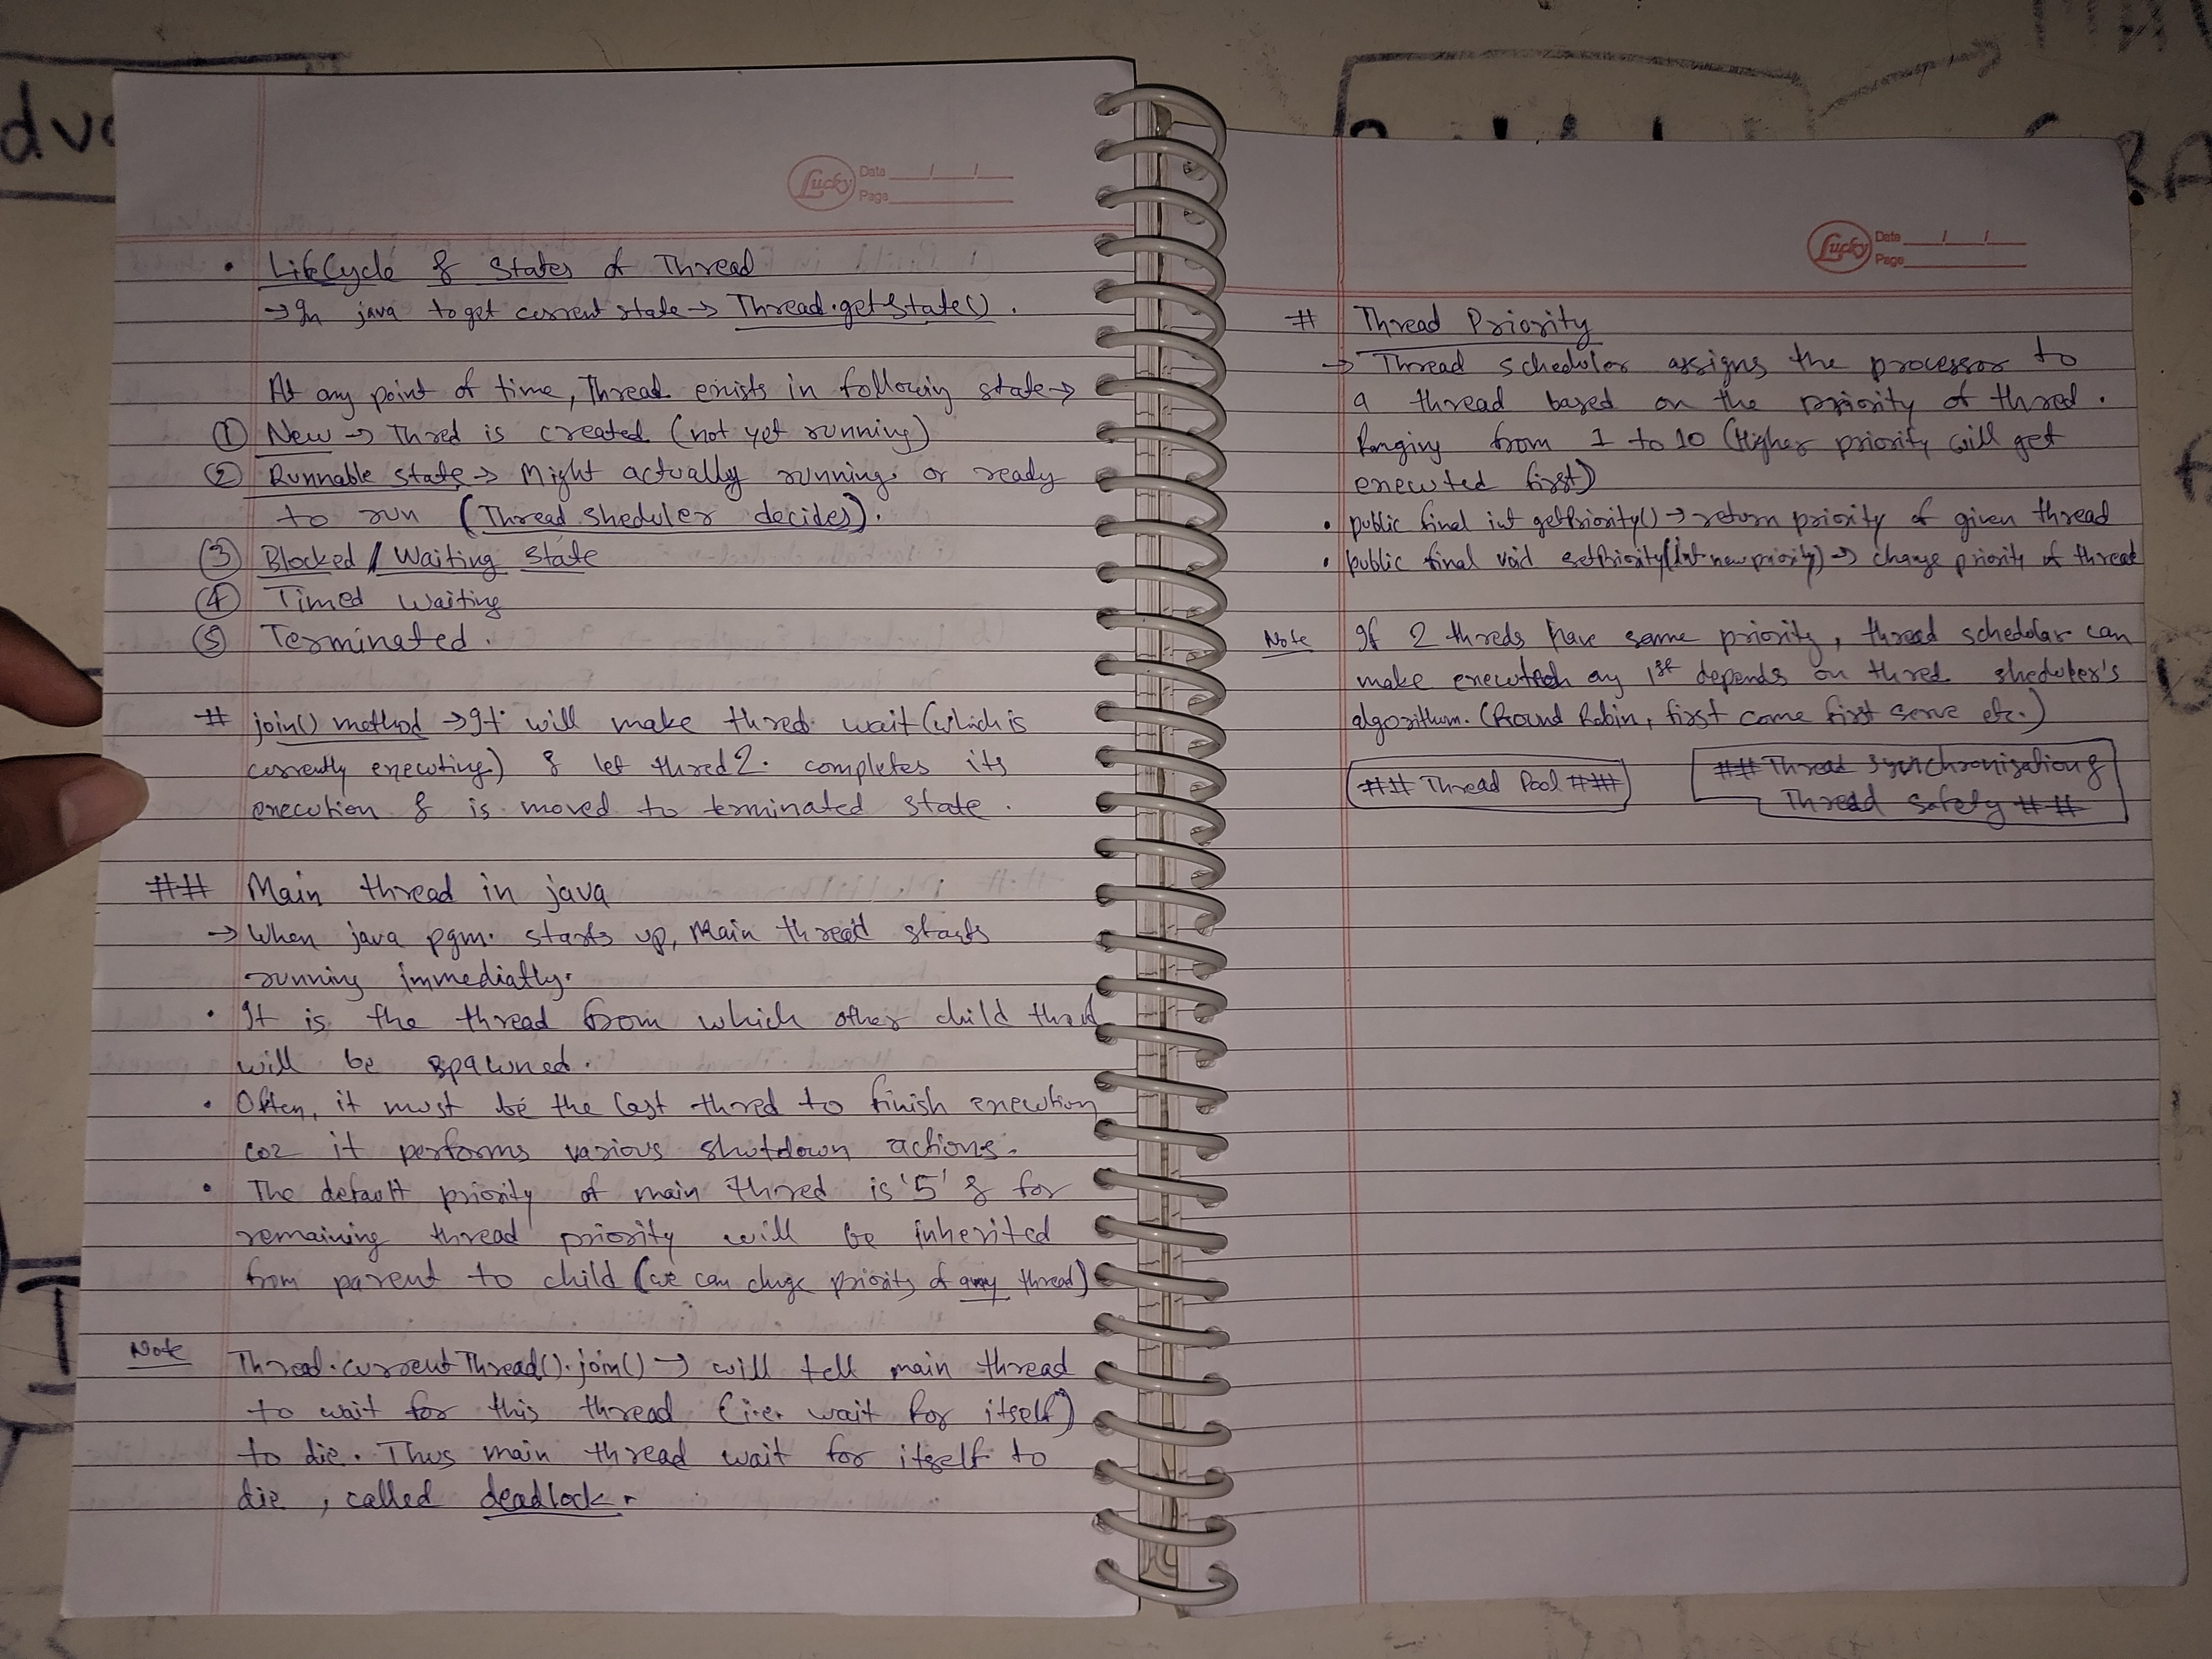 Lucky
Date / /
Page
• LifeCycle & States of Thread
→ In java to get current state → Thread.getState().
At any point of time, Thread exists in following state →
① New → Thred is created (not yet running)
② Runnable state → Might actually running or ready
to run (Thread Sheduler decides).
③ Blocked / Waiting State
④ Timed Waiting
⑤ Terminated.
# join() method → It will make thred wait (which is
currently executing) & let thred 2. completes its
execution & is moved to terminated state.
## Main thread in java
→ When java pgm. starts up, Main thread starts
running immediatly.
• It is the thread from which other child thred
will be spawned.
• Often, it must be the last thred to finish execution
coz it performs various shutdown actions.
• The default priority of main thred is '5' & for
remaining thread priority will be inherited
from parent to child (we can chnge priority of any thread)
Note Thread.currentThread().join() → will tell main thread
to wait for this thread (i.e. wait for itself)
to die. Thus main thread wait for itself to
die, called deadlock.
Lucky
Date / /
Page
# Thread Priority
→ Thread scheduler assigns the processor to
a thread based on the priority of thred.
Ranging from 1 to 10 (Higher priority will get
executed first)
• public final int getPriority() → return priority of given thread
• public final void setPriority(int new priority) → change priority of thread
Note If 2 threds have same priority, thread schedular can
make executed any 1st depends on thred sheduler's
algorithum. (Round Robin, first come first serve etc.)
## Thread Pool ##
## Thread Synchronization &
Thread Safety ##